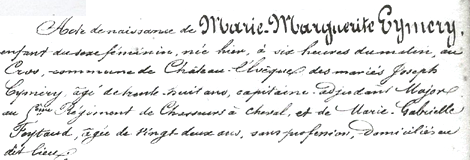 Acte de naissance de Marie-Marguerite Eymery,
enfant du sexe féminin, née hier, à six heures du matin, au
Cros, commune de Château-l'Evêque des mariés Joseph
Eymery, âgé de trente huit ans, capitaine adjudant Major
au Régiment de Chasseurs à cheval, et de Marie Gabrielle
Feytaud, âgée de vingt deux ans, sans profession, domiciliés au
dit lieu.